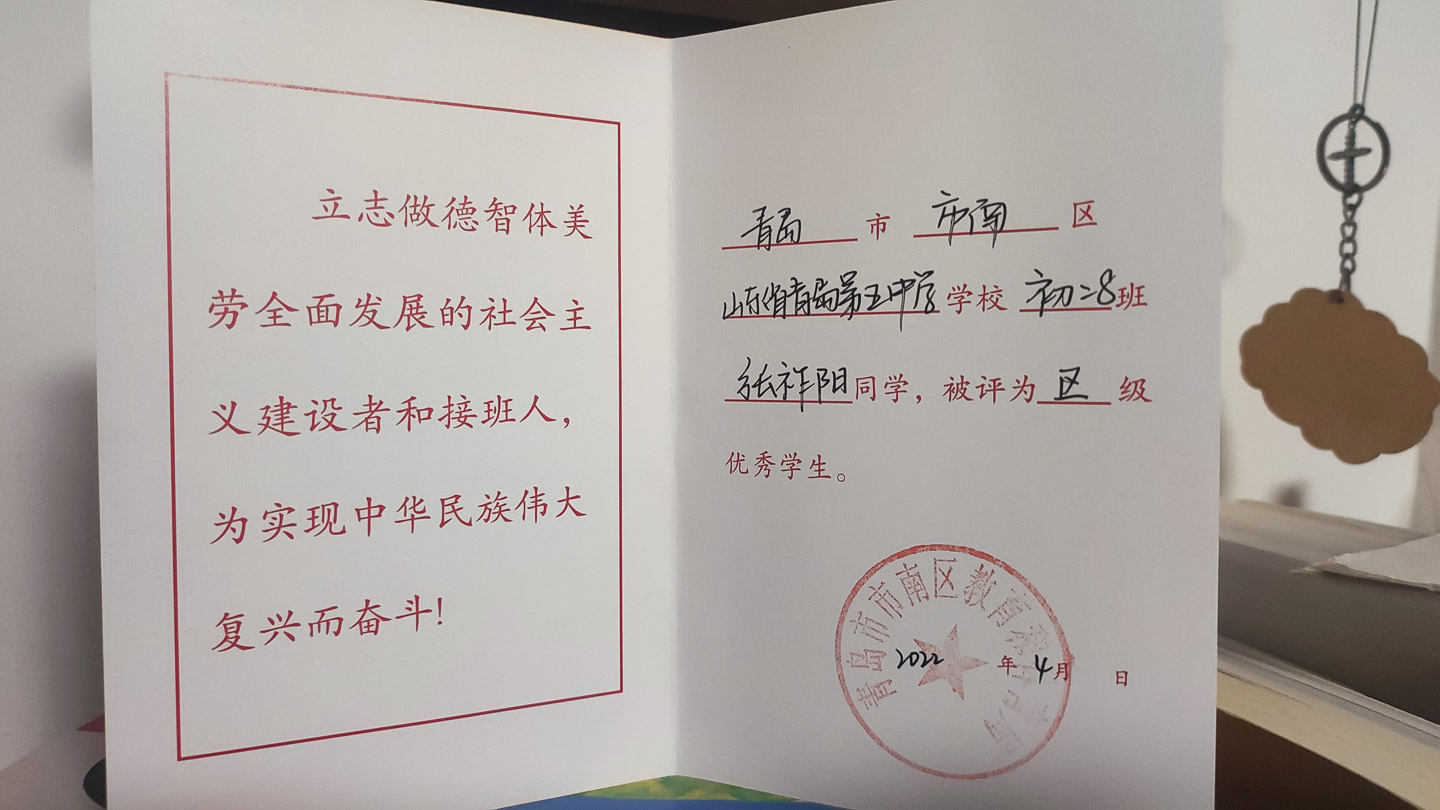 立志做德智体美
劳全面发展的社会主
义建设者和接班人，
为实现中华民族伟大
复兴而奋斗！
青岛市 市南区
山东省青岛第五中学学校 初二8班
张祚阳同学，被评为区级
优秀学生。
青岛市市南区教育和体育局
2022年4月 日